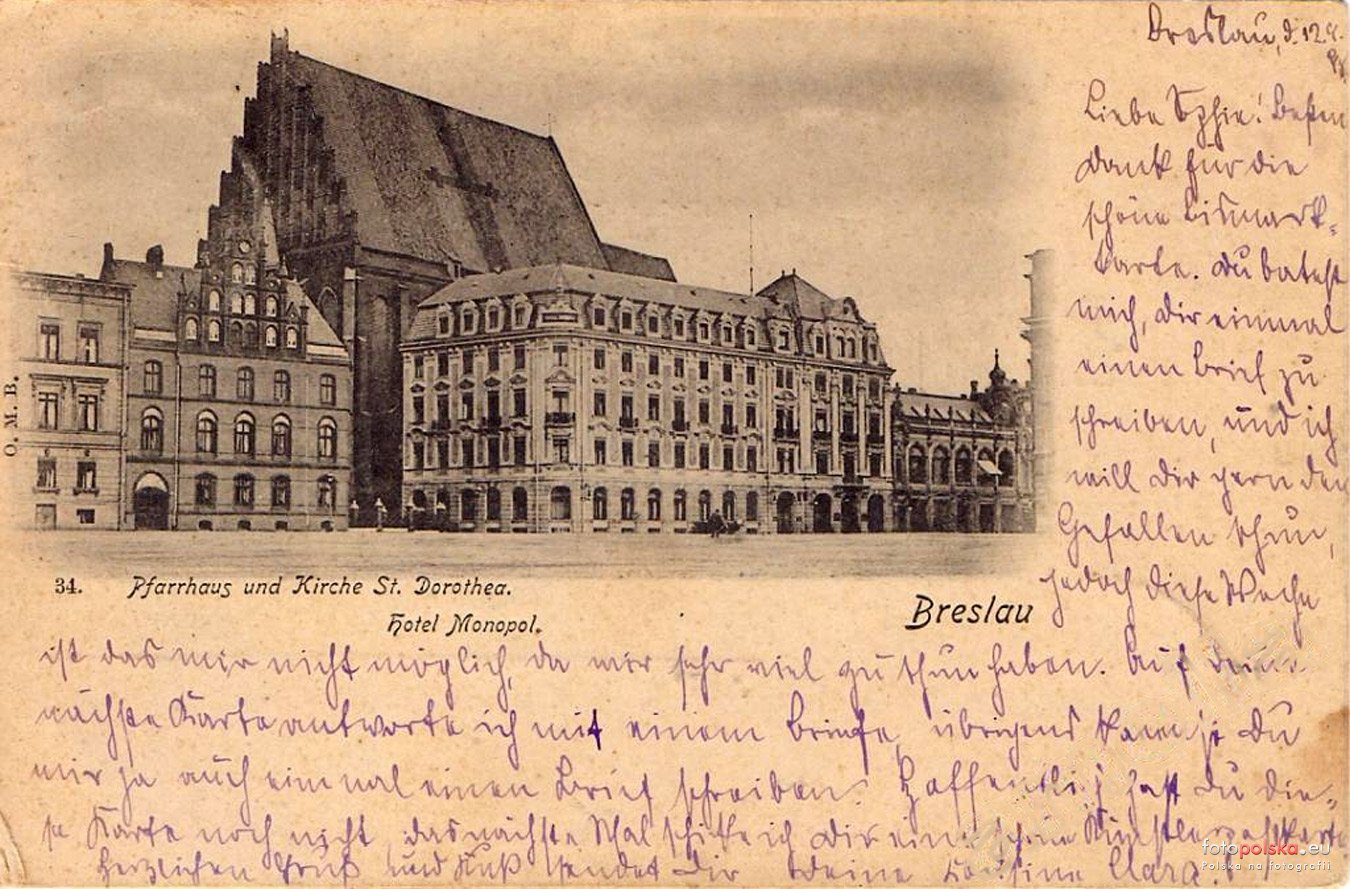 Breslau, d. 12.9.
Liebe Sophie! Besten
Dank für die
schöne Bismark-
karte. Du batest
mich, Dir einmal
einen Brief zu
schreiben, und ich
will Dir gern den
Gefallen thun,
jedoch diese Woche
O. M. B.
34. Pfarrhaus und Kirche St. Dorothea.
Hotel Monopol.
Breslau
ist das mir nicht möglich, da wir sehr viel zu thun haben. Auf deine
nächste Karte antworte ich mit einem Briefe, übrigens kannst Du
mir ja auch einmal einen Brief schreiben. Hoffentlich hast Du die-
se Karte noch nicht, das nächste Mal schicke ich Dir eine schöne Künstlerpostkarte
Herzlichen Gruß und Kuß sendet Dir Deine Cousine Clara
fotopolska.eu
Polska na fotografii